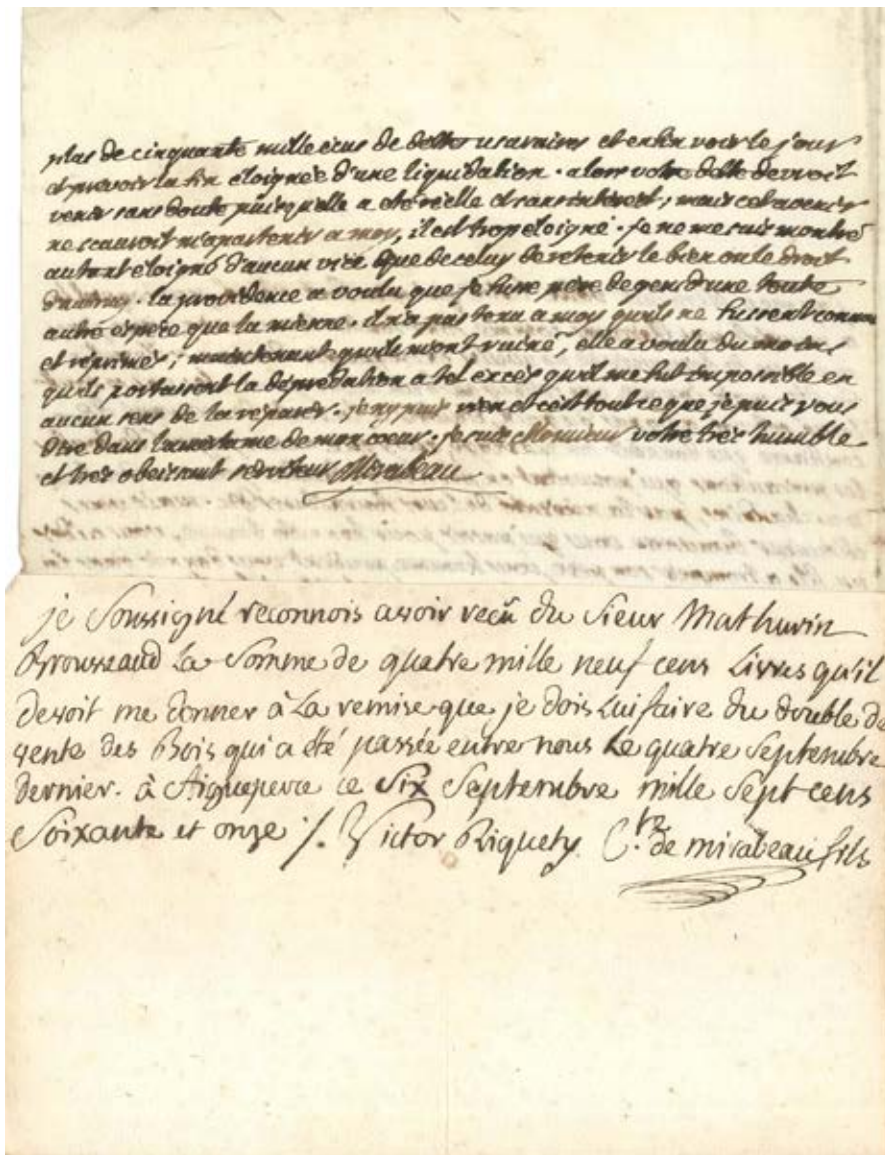 plus de cinquante mille ecus de dettes usuraires et enfin voir le jour
et prevoir la fin eloignée d'une liquidation. alors votre dette devroit
venir sans doute puisqu'elle a eté réelle et sans interest; mais cet avenir
ne scauroit m'apartenir a moy, il est trop eloigné. je ne me suis montré
autant éloigné d'aucun vice que de celuy de retenir le bien ou le droit
d'autruy. la providence a voulu que je fusse père de gens d'une toute
autre espece que la mienne. il n'a pas tenu a moy qu'ils ne fussent connus
et réprimés; maintenant qu'ils m'ont ruiné, elle a voulu du moins
qu'ils portassent la déprédation a tel excès qu'il me fut impossible en
aucun sens de la reparer. je n'y puis rien et c'est tout ce que je puis vous
dire dans de mon coeur. je suis Monsieur votre très humble
et très obeissant serviteur Mirabeau
je Soussigné reconnois avoir reçû du Sieur Mathurin
La Somme de quatre mille neuf cens Livres qu'il
devoit me donner à La remise que je dois Lui faire du double de
vente des Bois qui a été passée entre nous Le quatre Septembre
dernier. à Aigueperce ce Six Septembre mille Sept cens
Soixante et onze ./. Victor Riquety. C.te de mirabeau fils